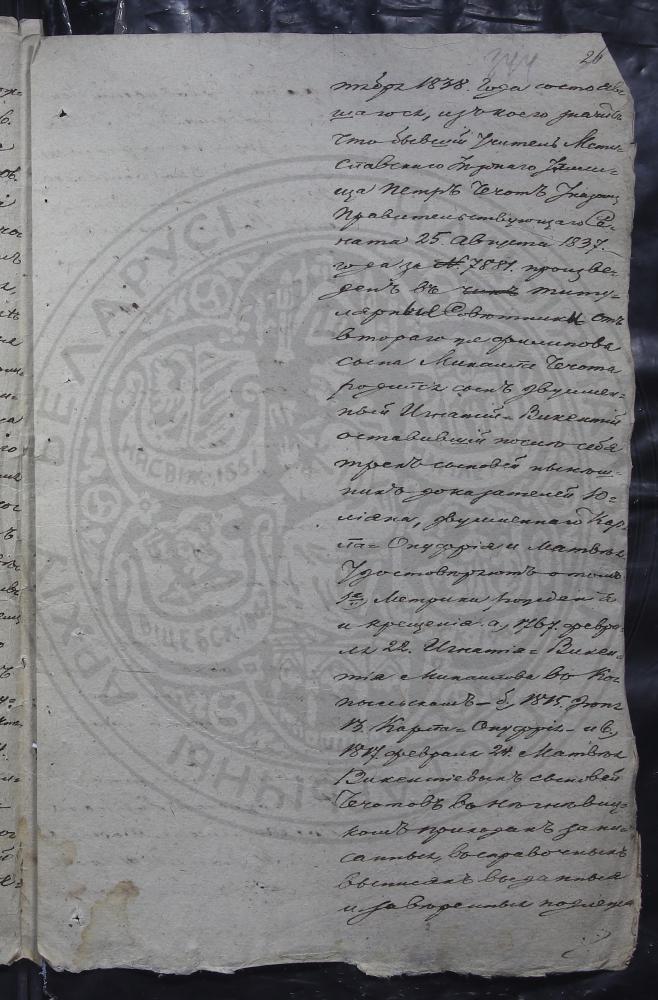 26
344
тября 1838. Года состояв-
шагося, изъ коего значитъ
что бывшій Учитель Мсти-
славскаго Уѣзднаго Учили-
ща Петръ Чечотъ Указомъ
Правительствующаго Се-
ната 25. Августа 1837.
года за № 7881. произве-
денъ въ чинъ титу-
лярные Совѣтники отъ
втораго же Филипова
сына Михаила Чечота
родился сынъ двуимен-
ный Игнатій-Викентій
оставившій послѣ себя
трехъ сыновей нынѣш-
нихъ доказателей Ю-
ліяна, двуименнаго Кар-
ла-Онуфрія и Матвѣя
Удостовѣряютъ о томъ
Метрики рожденія
и крещенія а, 1767. февра-
ля 22. Игнатія-Викен-
тія Михаилова въ Ко-
пыльскомъ-б, 1815. Іюня
13. Карла-Онуфрія-и в,
1817 февраля 24. Матвѣя
Викентіевыхъ сыновей
Чечотовъ въ
комъ приходахъ запи-
санныя, въ справочныхъ
выписяхъ выданныя
и завѣренныя надлежа
НАСВІЖ, 1551
ВІЦЕБСК
АРХІЎ БЕЛАРУСІ